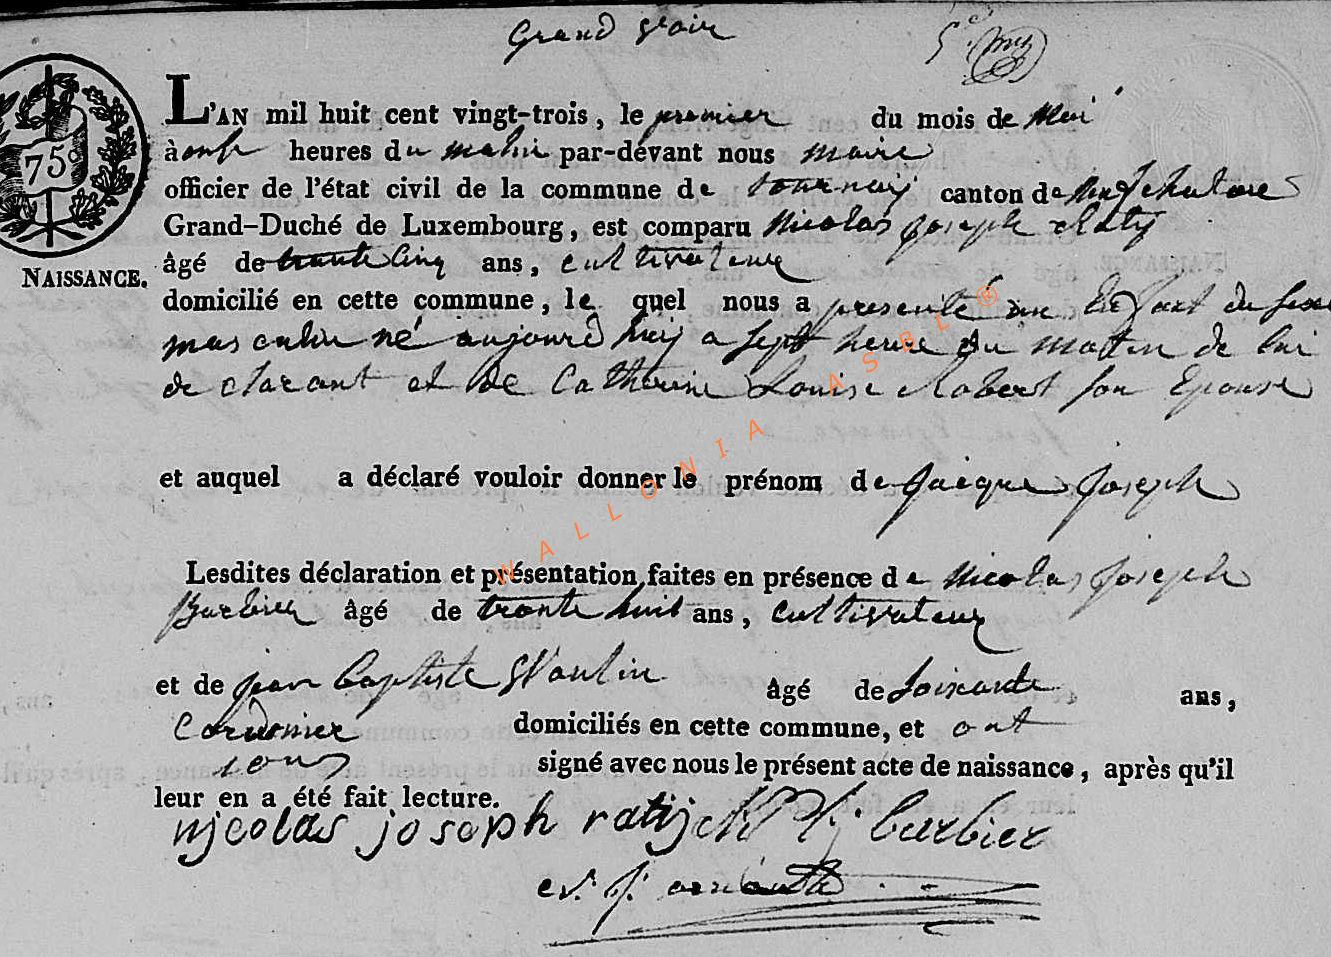 Grand voir
5e
75c
NAISSANCE.
L'AN mil huit cent vingt-trois, le premier du mois de Mai
à onse heures du matin par-devant nous maire
officier de l'état civil de la commune de tournay canton de neufchateau
Grand-Duché de Luxembourg, est comparu Nicolas joseph Raty
âgé de trante cinq ans, cultivateur
domicilié en cette commune, le quel nous a presenté un Enfant du sexe
masculin né aujourd huy a sept heure du matin de lui
declarant et de Catherine Louise Robert son Epouse
et auquel a déclaré vouloir donner le prénom de jacque joseph
Lesdites déclaration et présentation faites en présence de Nicolas joseph
Barbier âgé de trante huit ans, cultivateur
et de jean baptiste âgé de soixante ans,
Cordonier domiciliés en cette commune, et ont
tous signé avec nous le présent acte de naissance, après qu'il
leur en a été fait lecture.
nicolas joseph ratij barbier
WALLONIA ASBL ®